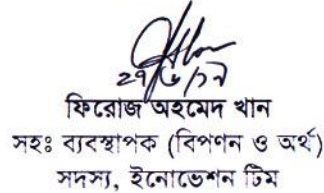 ফিরোজ আহমেদ খান
সহঃ ব্যবস্থাপক (বিপণন ও অর্থ)
সদস্য, ইনোভেশন টিম